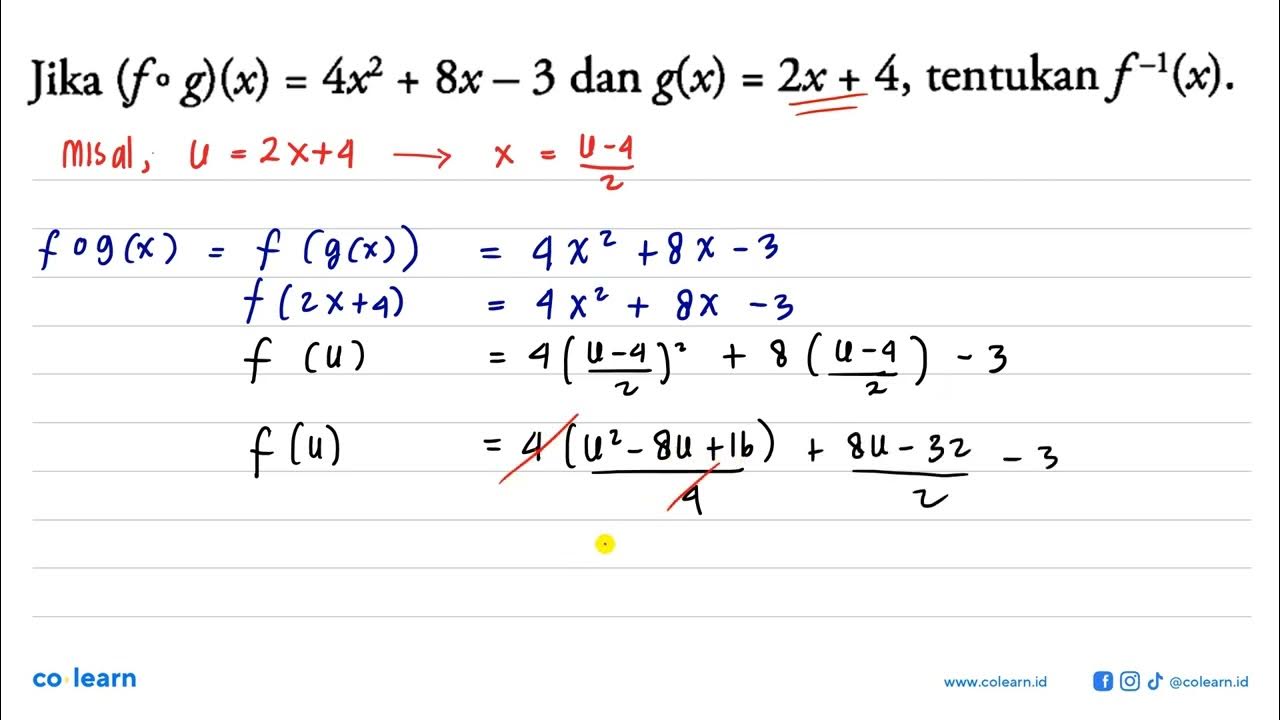 Jika (f∘g)(x) = 4x² + 8x – 3 dan g(x) = 2x + 4, tentukan f⁻¹(x).
Misal, u = 2x+4 → x = (u-4)/2
f o g(x) = f (g(x)) = 4x² + 8x - 3
f(2x+4) = 4x² + 8x - 3
f (u) = 4((u-4)/2)² + 8((u-4)/2) - 3
f(u) = 4(u² - 8u + 16)/4 + (8u - 32)/2 - 3
co·learn
www.colearn.id @colearn.id